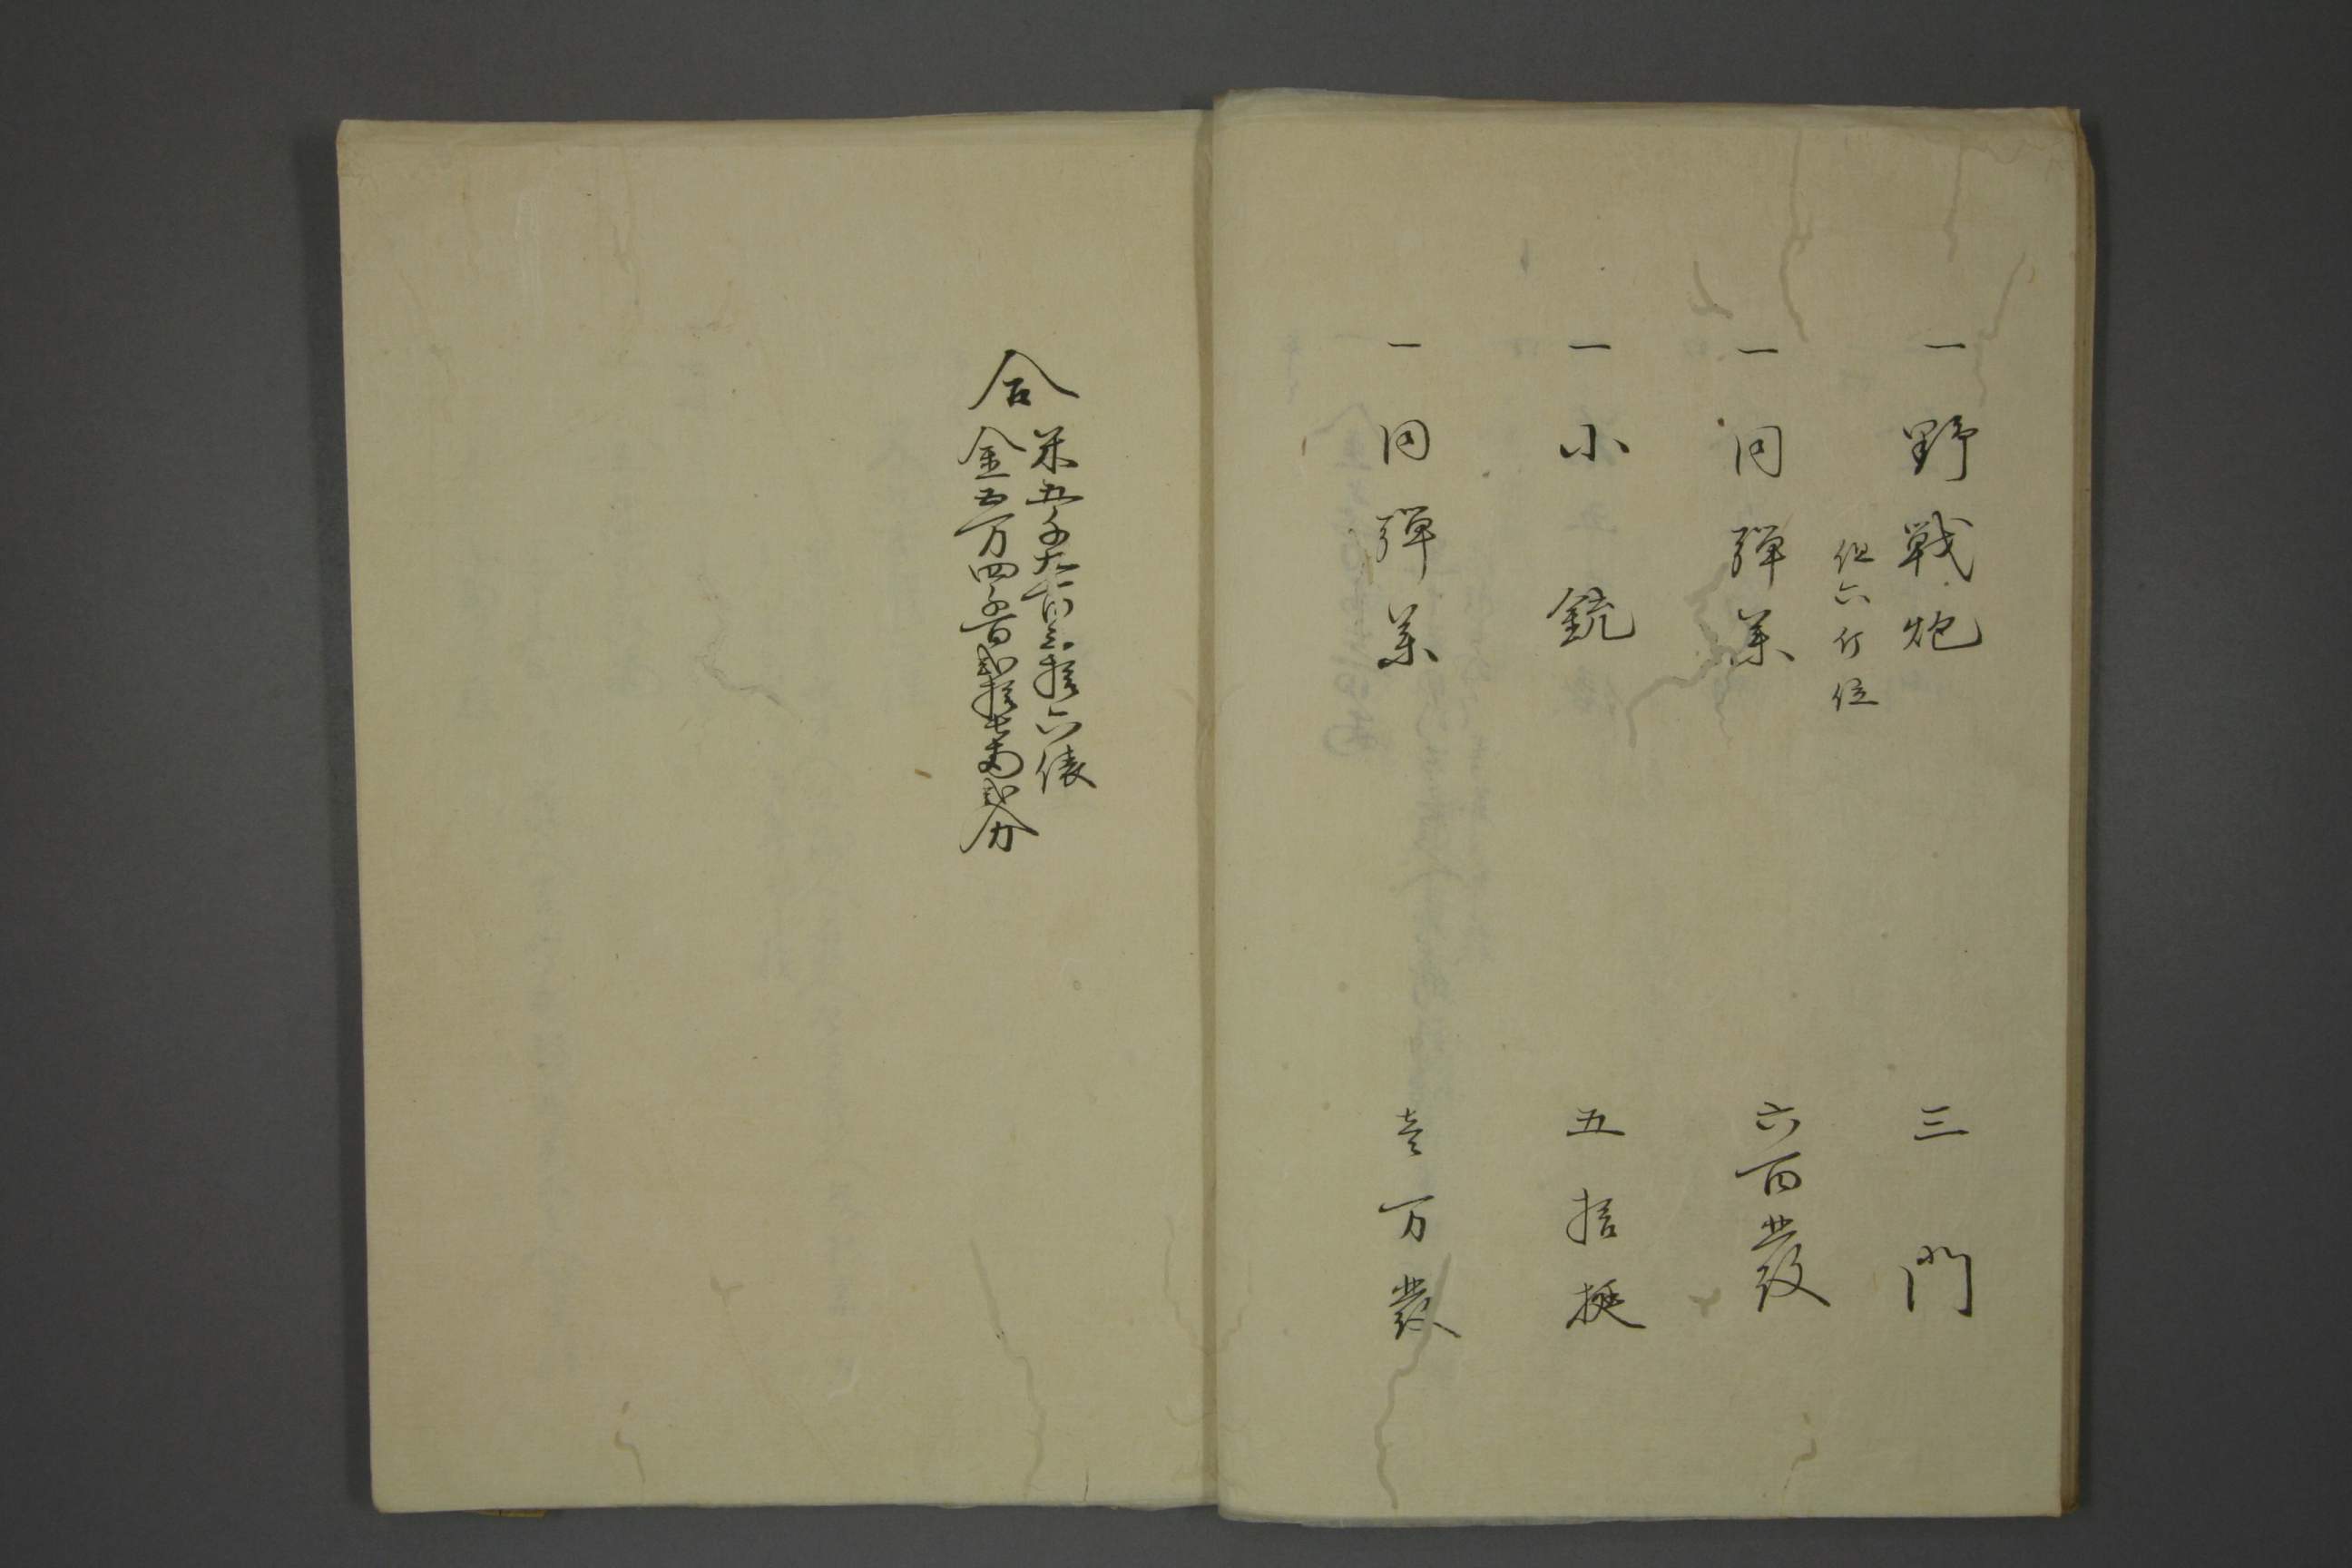 一野戦炮 三門
但六斤位
一同弾薬 六百發
一小銃 五拾挺
一同弾薬 壱万發
合
米五千九百三拾六俵
金五万四千百弐拾七両弐分